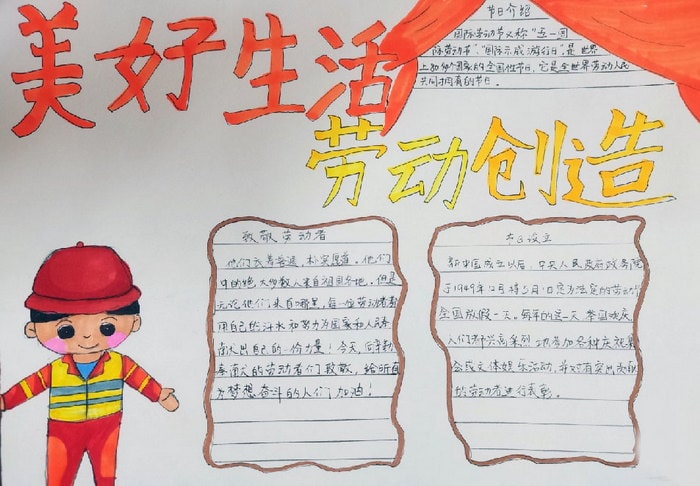 美好生活
劳动创造
节日介绍
国际劳动节又称“五一国
际劳动节”“国际示威游行日”是世界
上80多个国家的全国性节日,它是全世界劳动人民
共同拥有的节日。
致敬劳动者
他们衣着普通,朴实忠厚。他们
中的绝大多数人来自祖国各地。但是
无论他们来自哪里,每一位劳动者都
用自己的汗水和努力为国家和人民奉
献出自己的一份力量!今天,向辛勤
奉献的劳动者们致敬,给所有
为梦想奋斗的人们加油!
节日设立
新中国成立以后,中央人民政府政务院
于1949年12月将5月1日定为法定的劳动节
全国放假一天。每年的这一天,举国欢庆
人们都兴高采烈地参加各种庆祝集
会或文体娱乐活动,并对有突出贡献
的劳动者进行表彰。